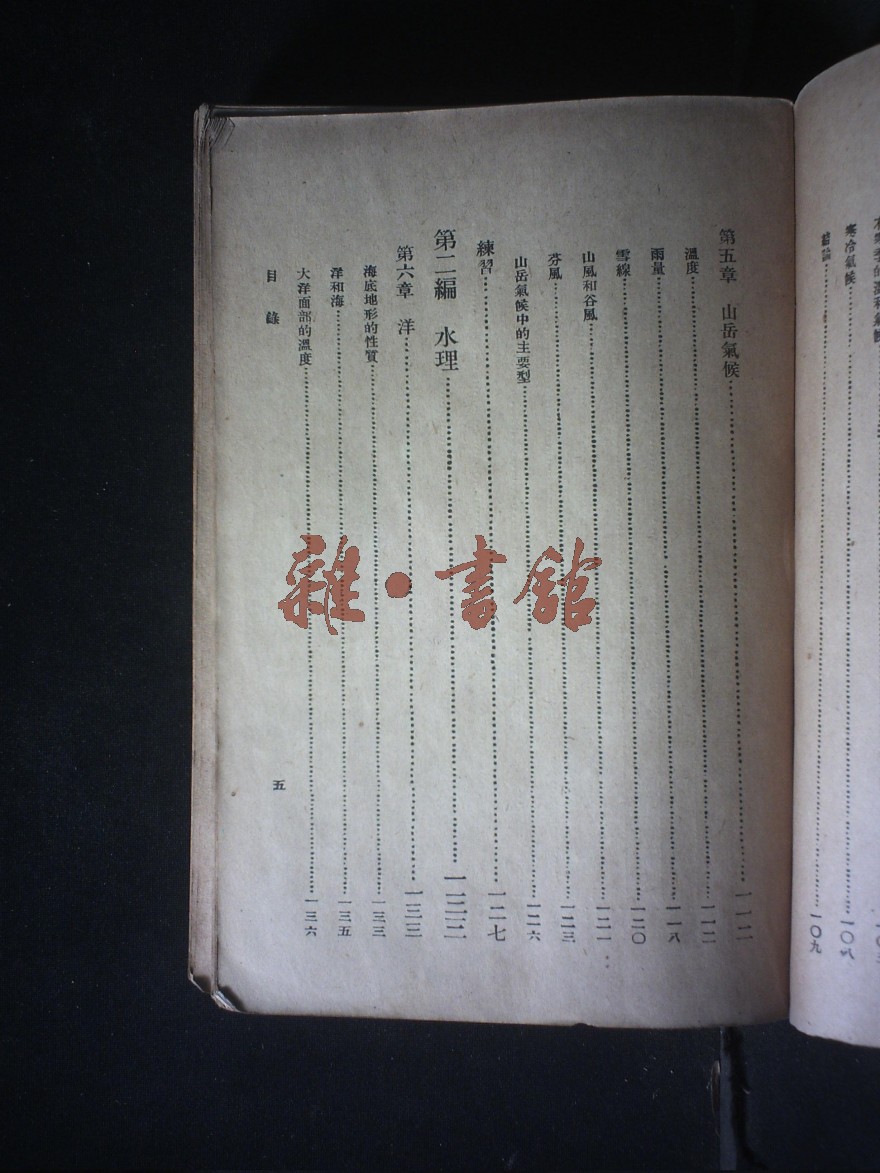 寒冷氣候……一〇八
結論……一〇九
第五章 山岳氣候……一一二
溫度……一一二
雨量……一一八
雪線……一二〇
山風和谷風……一二一
芬風……一二三
山岳氣候中的主要型……一二六
練習……一二七
第二編 水理……一三三
第六章 洋……一三三
海底地形的性質……一三三
洋和海……一三五
大洋面部的溫度……一三六
目錄
五
雜·書館